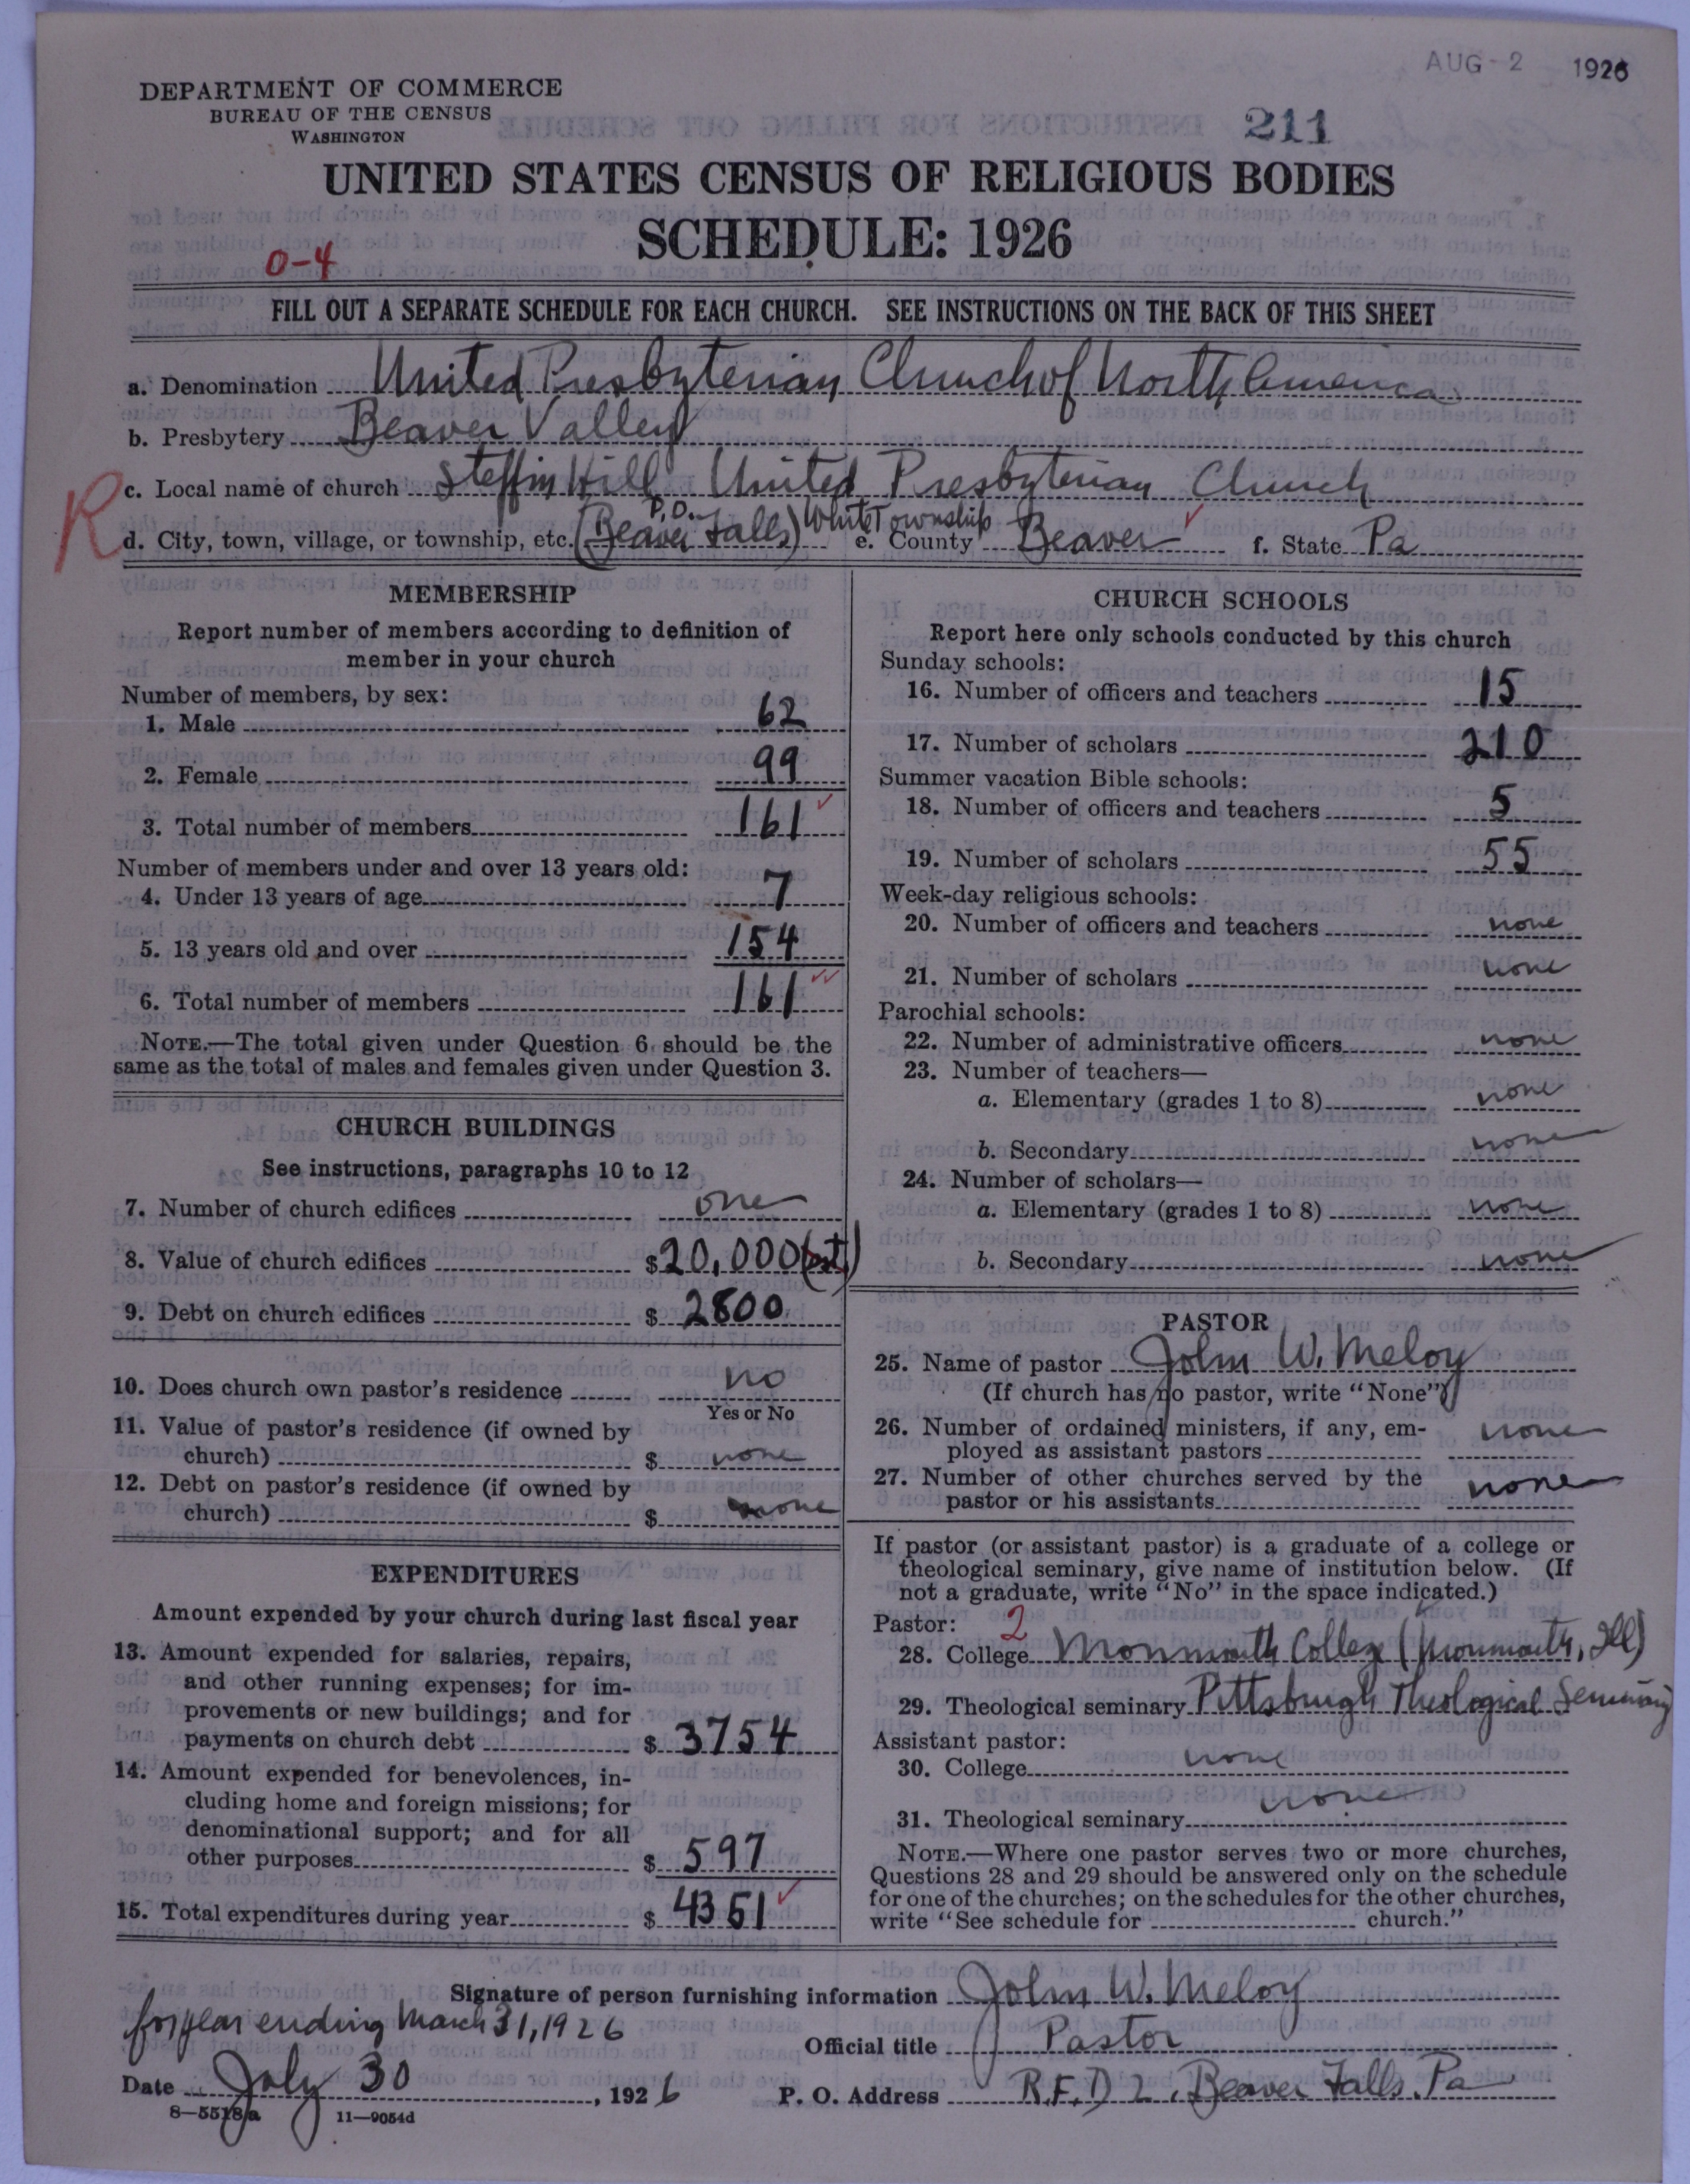 AUG - 2 1926
DEPARTMENT OF COMMERCE
BUREAU OF THE CENSUS
WASHINGTON
211
UNITED STATES CENSUS OF RELIGIOUS BODIES
SCHEDULE: 1926
0-4
FILL OUT A SEPARATE SCHEDULE FOR EACH CHURCH. SEE INSTRUCTIONS ON THE BACK OF THIS SHEET
a. Denomination United Presbyterian Church of North America
b. Presbytery Beaver Valley
R
c. Local name of church Steffin Hill United Presbyterian Church
d. City, town, village, or township, etc. (Beaver Falls P.O.) White Township e. County Beaver f. State Pa
MEMBERSHIP
Report number of members according to definition of
member in your church
Number of members, by sex:
1. Male 62
2. Female 99
3. Total number of members 161
Number of members under and over 13 years old:
4. Under 13 years of age 7
5. 13 years old and over 154
6. Total number of members 161
NOTE.—The total given under Question 6 should be the
same as the total of males and females given under Question 3.
CHURCH BUILDINGS
See instructions, paragraphs 10 to 12
7. Number of church edifices one
8. Value of church edifices $20,000 (est.)
9. Debt on church edifices $ 2800
10. Does church own pastor's residence no
Yes or No
11. Value of pastor's residence (if owned by
church) $ none
12. Debt on pastor's residence (if owned by
church) $ none
EXPENDITURES
Amount expended by your church during last fiscal year
13. Amount expended for salaries, repairs,
and other running expenses; for im-
provements or new buildings; and for
payments on church debt $ 3754
14. Amount expended for benevolences, in-
cluding home and foreign missions; for
denominational support; and for all
other purposes $ 597
15. Total expenditures during year $ 4351
CHURCH SCHOOLS
Report here only schools conducted by this church
Sunday schools:
16. Number of officers and teachers 15
17. Number of scholars 210
Summer vacation Bible schools:
18. Number of officers and teachers 5
19. Number of scholars 55
Week-day religious schools:
20. Number of officers and teachers none
21. Number of scholars none
Parochial schools:
22. Number of administrative officers none
23. Number of teachers—
a. Elementary (grades 1 to 8) none
b. Secondary none
24. Number of scholars—
a. Elementary (grades 1 to 8) none
b. Secondary none
PASTOR
25. Name of pastor John W. Meloy
(If church has no pastor, write "None")
26. Number of ordained ministers, if any, em-
ployed as assistant pastors none
27. Number of other churches served by the
pastor or his assistants none
If pastor (or assistant pastor) is a graduate of a college or
theological seminary, give name of institution below. (If
not a graduate, write "No" in the space indicated.)
Pastor: 2
28. College Monmouth College (Monmouth, Ill)
29. Theological seminary Pittsburgh Theological Seminary
Assistant pastor:
30. College none
31. Theological seminary none
NOTE.—Where one pastor serves two or more churches,
Questions 28 and 29 should be answered only on the schedule
for one of the churches; on the schedules for the other churches,
write "See schedule for church."
Signature of person furnishing information John W. Meloy
for year ending March 31, 1926
Official title Pastor
Date July 30, 1926 P. O. Address R.F.D 2, Beaver Falls, Pa
8-5518a 11-9054d